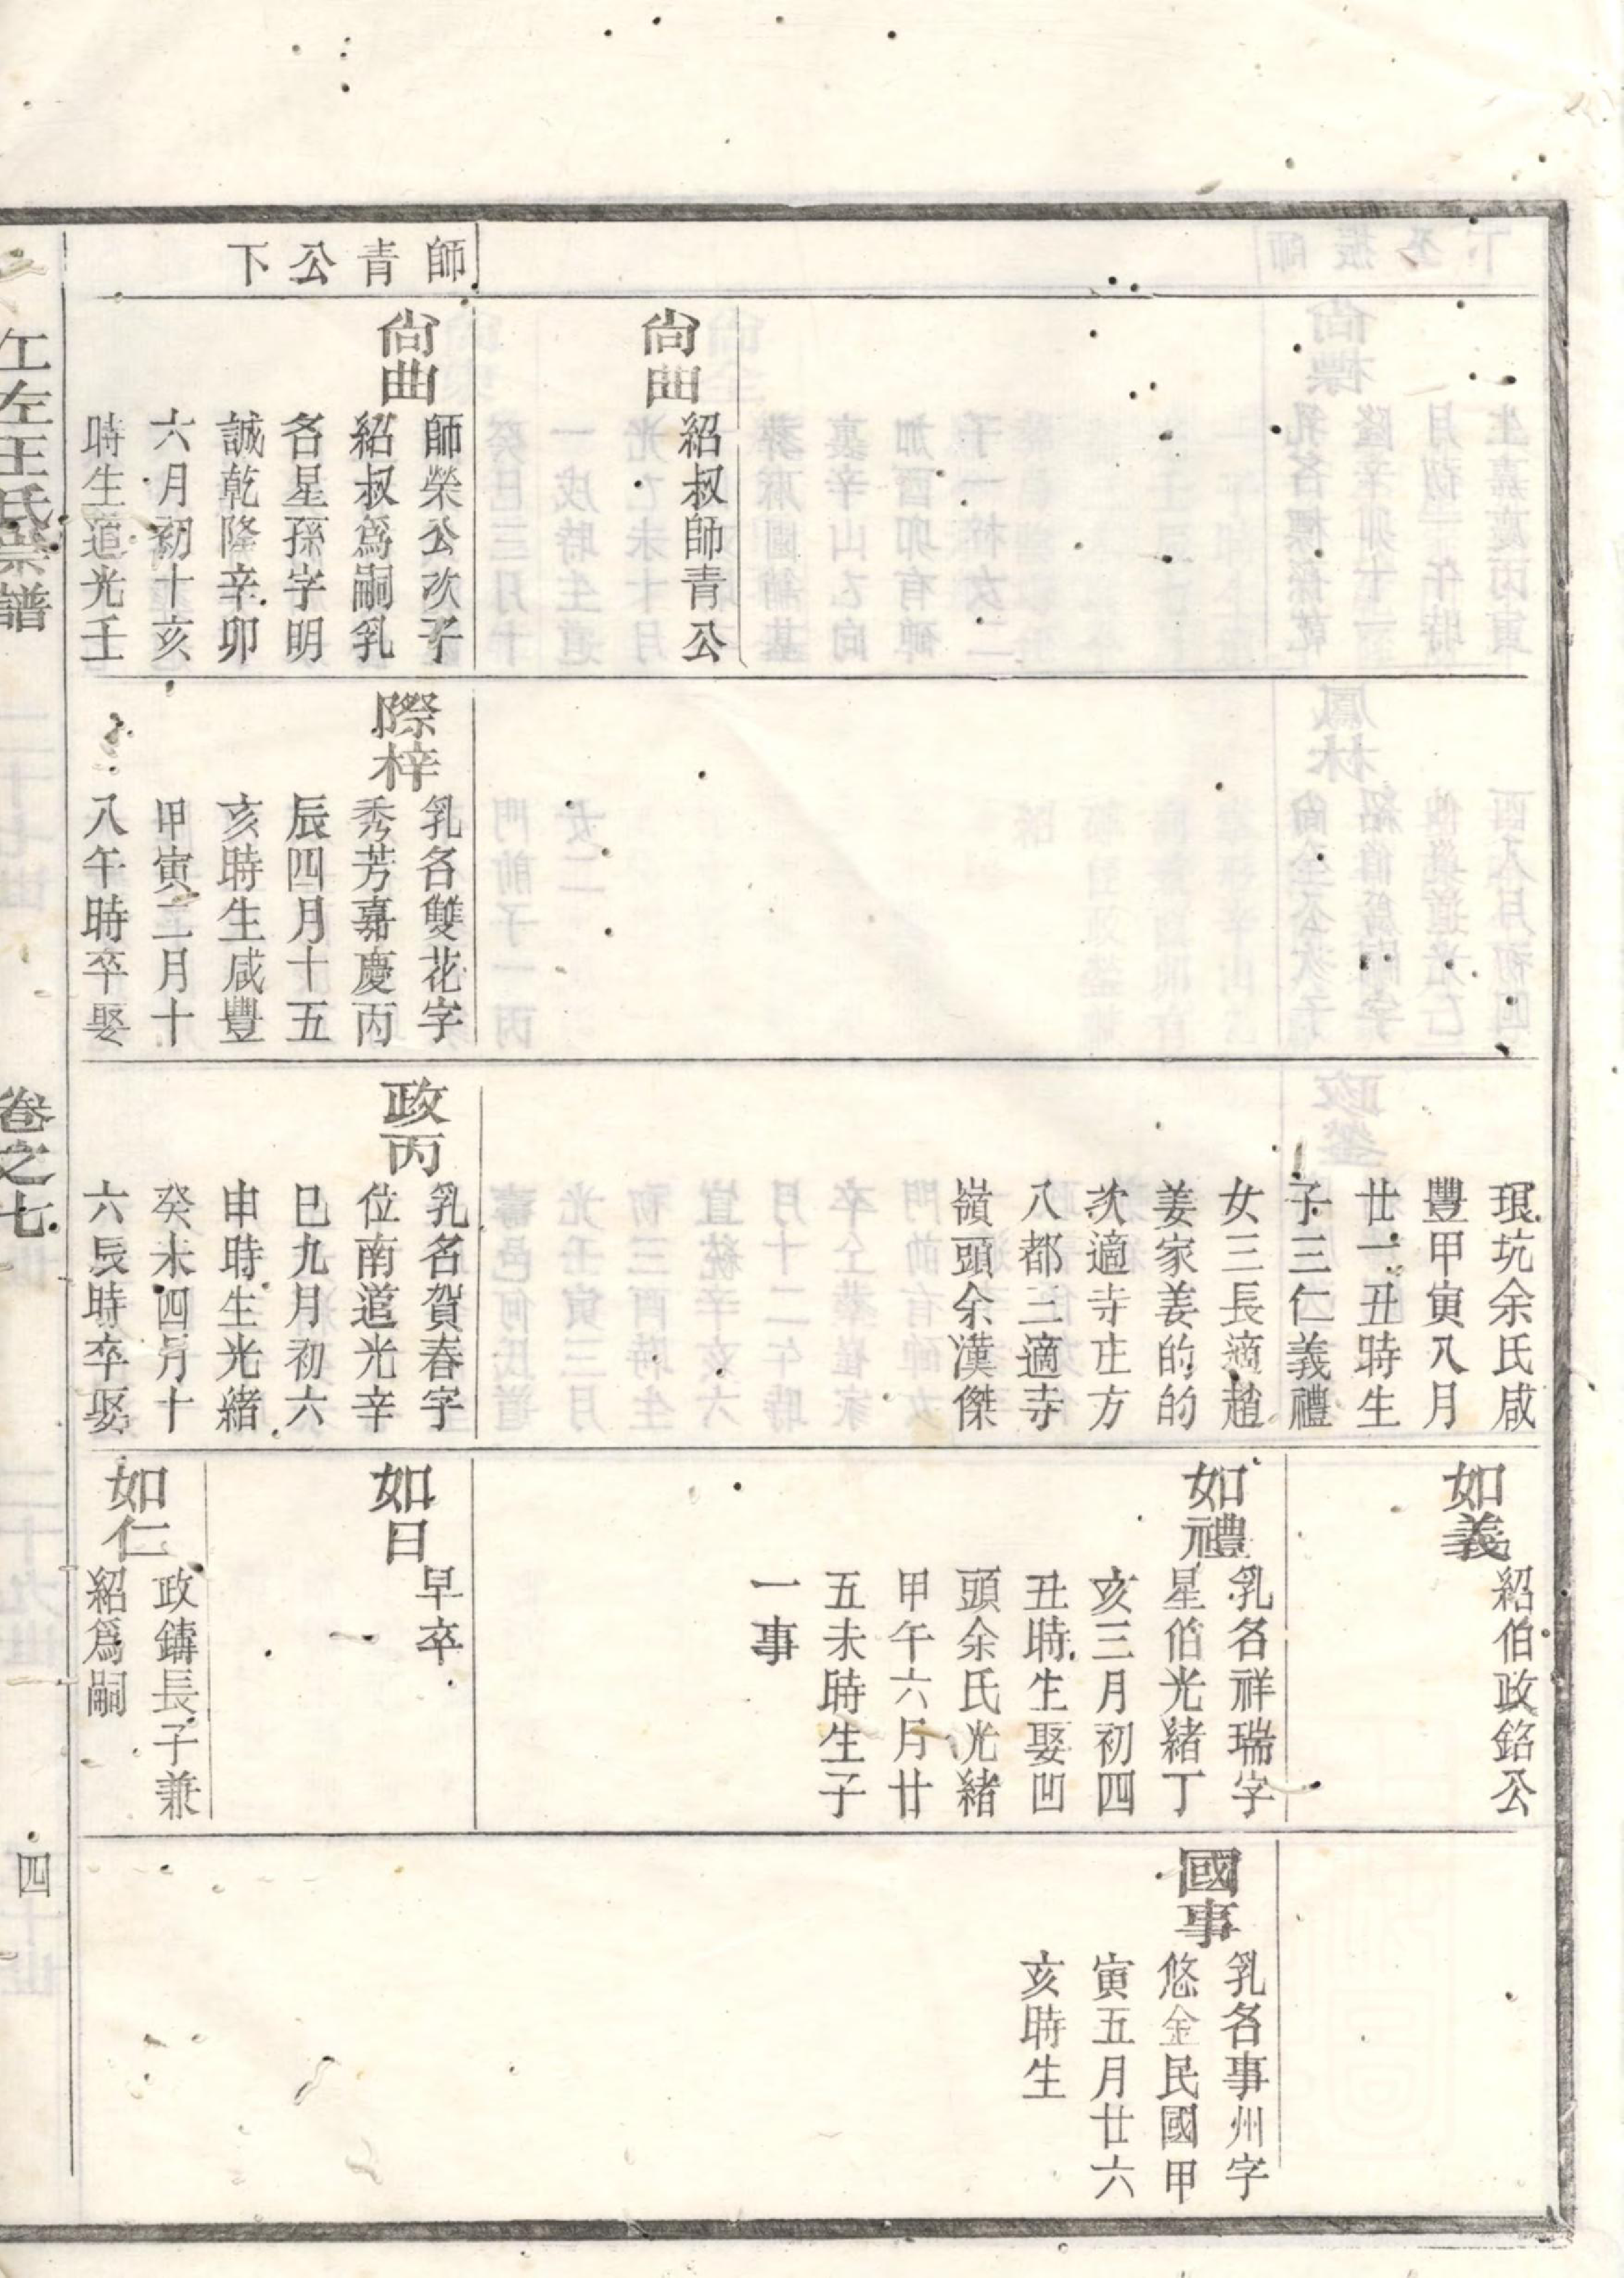 師青公下
尙曲
紹叔師青公
尙曲
師榮公次子
紹叔爲嗣乳
名星孫字明
誠乾隆辛卯
六月初十亥
時生道光壬
際梓
乳名雙花字
秀芳嘉慶丙
辰四月十五
亥時生咸豐
甲寅二月十
八午時卒娶
琅坑余氏咸
豐甲寅八月
廿一丑時生
子三仁義禮
女三長適趙
姜家姜的的
次適寺庄方
八都三適寺
嶺頭余漢傑
政丙
乳名賀春字
位南道光辛
巳九月初六
申時生光緒
癸未四月十
六辰時卒娶
如義
紹伯政銘公
如禮
乳名祥瑞字
星伯光緒丁
亥三月初四
丑時生娶凹
頭余氏光緒
甲午六月廿
五未時生子
一事
如日
早卒
如仁
政鑄長子兼
紹爲嗣
國事
乳名事州字
悠金民國甲
寅五月廿六
亥時生
江左王氏宗譜
卷之七
四